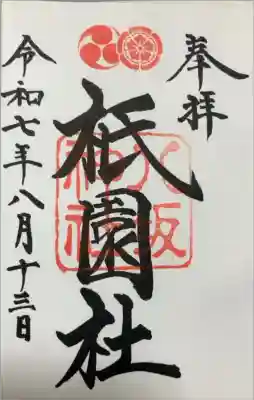 奉拝
祇園社
八坂神社
令和七年八月十三日